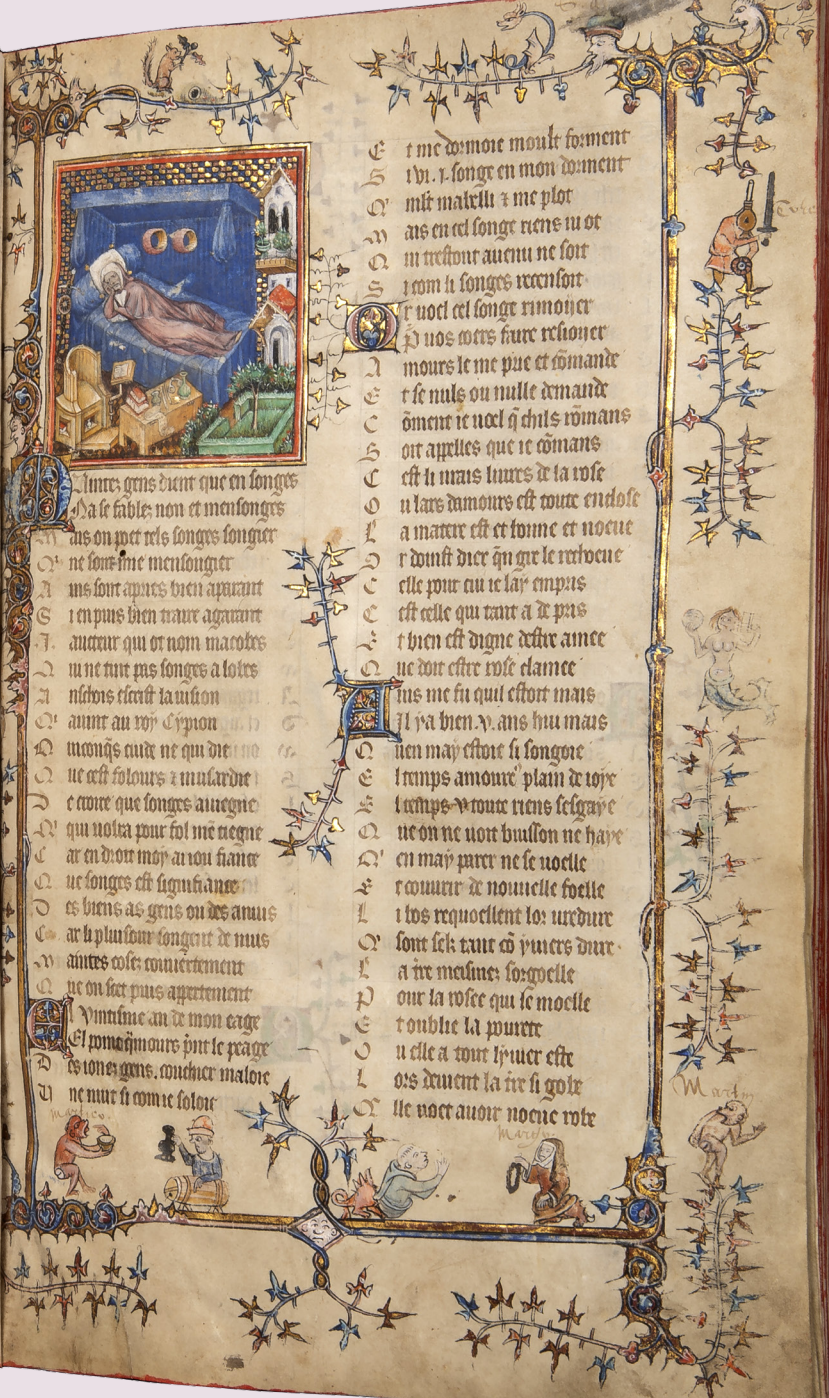 Aintez gens dient que en songes
Na se fables non et mensonges
Mais on poet tels songes songier
Q' ne sont mie mensongier
Ains sont apries bien aparant
Si en puis bien traire a garant
J. aucteur qui ot nom macobes
Qui ne tint pas songes a lobes
Ancois escrist la vision
Q' avint au roy Cypion
Quiconqs cuide ne qui die
Que cest folours & musardie
De croire que songes aviegne
Q' qui volra pour fol me tiegne
Car en droit moy ai iou fiance
Que songes est signifiance
Des biens as gens ou des anuis
Car li pluisour songent de nuis
Maintes coses couvertement
Que on set puis appertement
El Vintisme an de mon eage
El point qmours prent le peage
Des iones gens. couchier maloie
Une nuit si com ie soloie
Et me dormoie moult forment
Si vi .i. songe en mon dorment
Q' mlt mabelli & me plot
Mais en cel songe riens ni ot
Qui trestout avenu ne soit
Si com li songes recensoit
Or voel cel songe rimoiier
P vos coers faire resioiier
Amours le me prie et comande
Et se nuls ou nulle demande
Coment ie voel q chils romans
Soit appelles que ie comans
Cest li mais livres de la rose
Ou lars damours est toute enclose
La matere est et bonne et noeue
Or doinst diex qn gre le rechoeve
Celle pour cui ie lay empris
Cest celle qui tant a de pris
Et bien est digne destre amee
Que doit estre rose clamee
Avis me fu quil estoit mais
Il y a bien .v. ans hui mais
Quen may estoie si songoie
El temps amoure' plain de ioye
El temps v toute riens sesgaye
Que on ne voit buisson ne haye
Q' en may parer ne se voelle
Et couvrir de nouvelle foelle
Li bos requoellent lor verdure
Q' sont sek tant co yviers dure.
La tre meismes sorgoelle
Pour la rosee qui se moelle
Et oublie la povrete
Ou elle a tout lyver este
Lors devient la tre si gobe
Q' lle voet avoir noeue robe
Martin